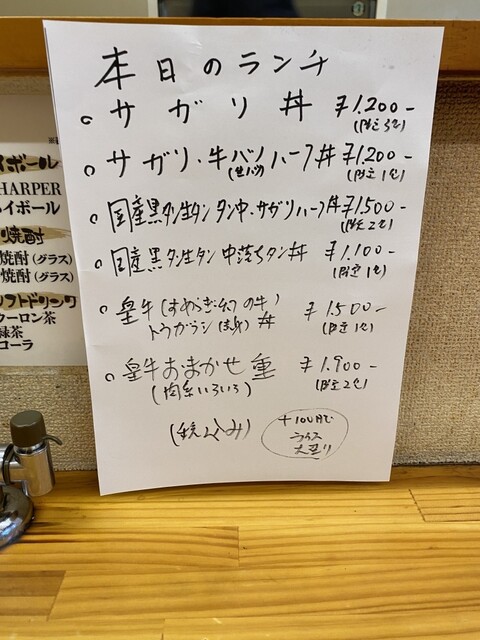 本日のランチ
○ サガリ丼 ¥1.200-
(限定3色)
○ サガリ・牛バソハーフ丼 ¥1.200-
(限定1色)
○ 国産黒タン生タン タン中・サガリハーフ丼 ¥1.500-
(限定2色)
○ 国産黒タン生タン 中落ちタン丼 ¥1.100-
(限定1色)
○ 皇牛(すめらぎ・幻の牛) ¥1.500-
トウガラシ 丼 (限定1色)
○ 皇牛おまかせ重 ¥1.900-
(肉系いろいろ) (限定2色)
(税込み)
+100円で
ライス
大盛り
イボール
HARPER
イボール
焼酎
焼酎 (グラス)
焼酎 (グラス)
フトドリンク
ウーロン茶
緑茶
コーラ